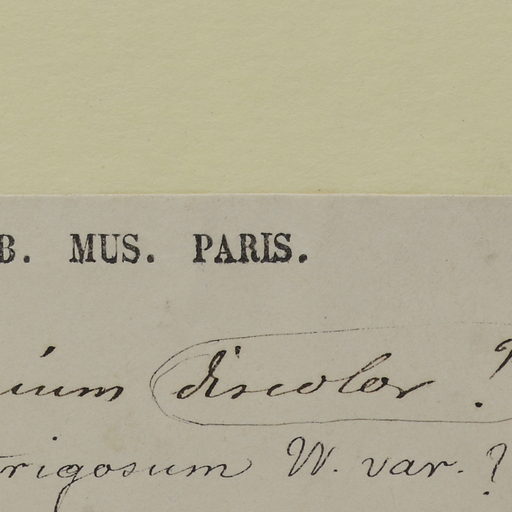 B. MUS. PARIS.
ium discolor ?
trigosum W. var. ?